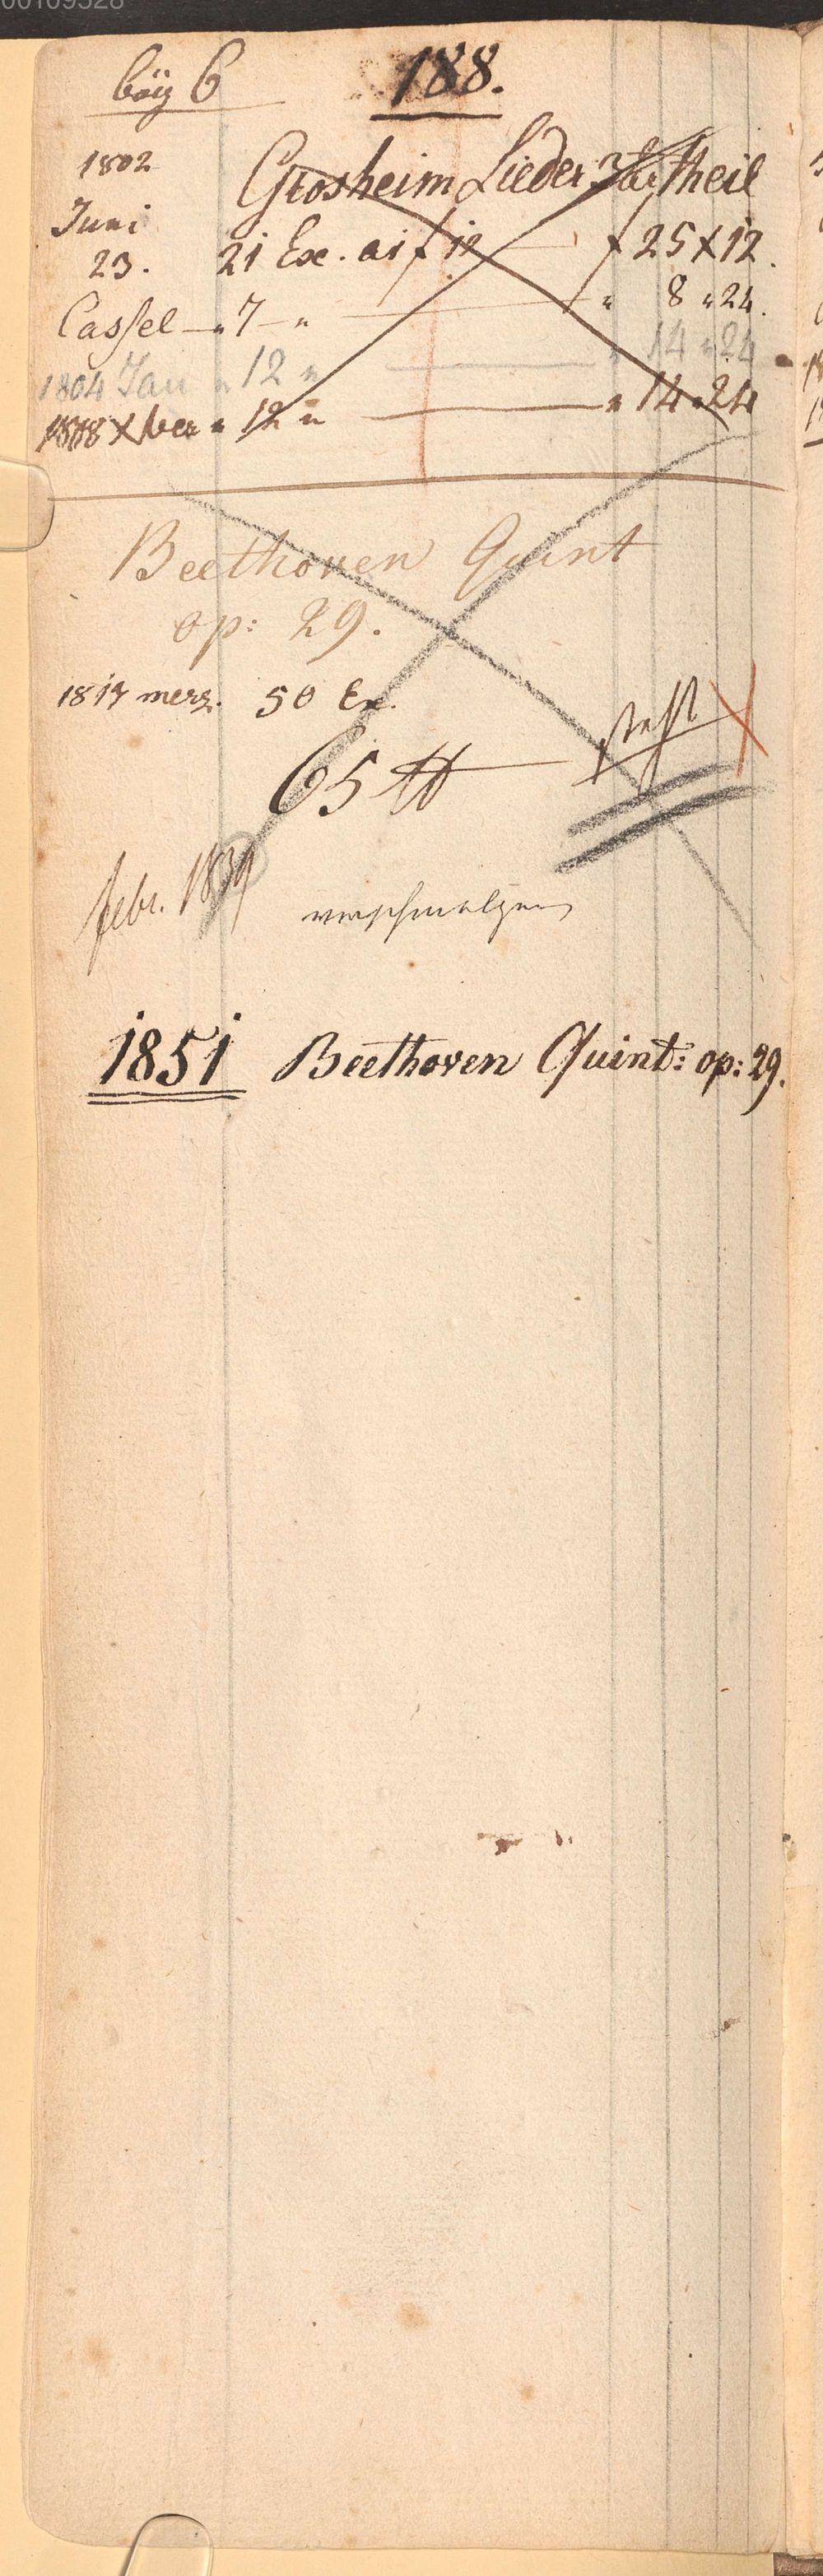 böÿ 6 188.
1802 Grosheim Lieder 3ter theil
Juni
23. 21 Ex. ai f 12 f 25 X 12.
Cassel — " 7 — " " 8 " 24.
1804 Jan " 12 " " 14 " 24
1808 Xber " 12 " " 14 " 24
Beethoven Quint
op: 29.
1817 merz. 50 Ex.
65 ℔ steht
febr. 1839 verschmolzen
1851 Beethoven Quint: op: 29.